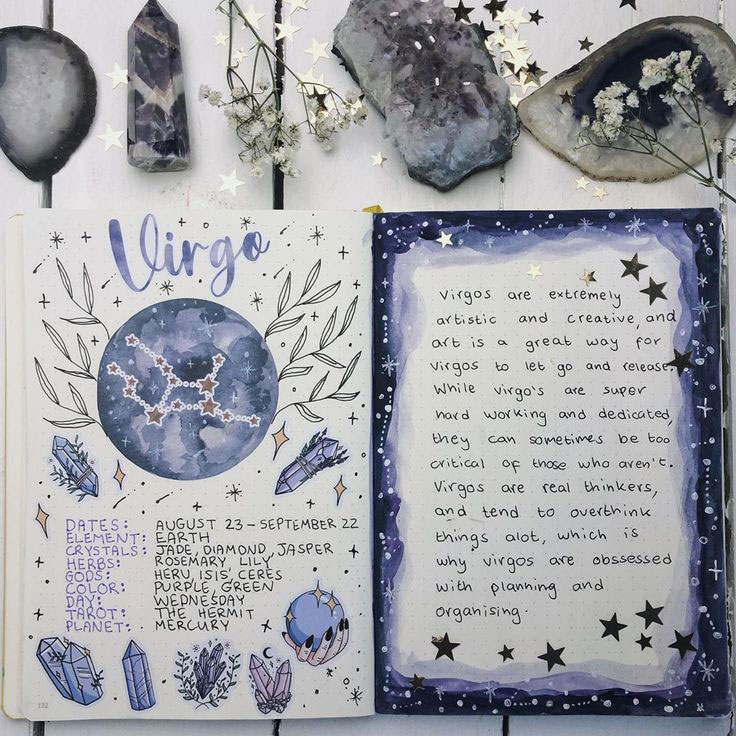 Virgo
DATES: AUGUST 23 – SEPTEMBER 22
ELEMENT: EARTH
CRYSTALS: JADE, DIAMOND, JASPER
HERBS: ROSEMARY LILY
GODS: HERU, ISIS, CERES
COLOR: PURPLE, GREEN
DAY: WEDNESDAY
TAROT: THE HERMIT
PLANET: MERCURY
132
Virgos are extremely
artistic and creative, and
art is a great way for
virgos to let go and release.
While virgo's are super
hard working and dedicated,
they can sometimes be too
critical of those who aren't.
Virgos are real thinkers,
and tend to overthink
things alot, which is
why virgos are obssessed
with planning and
organising.